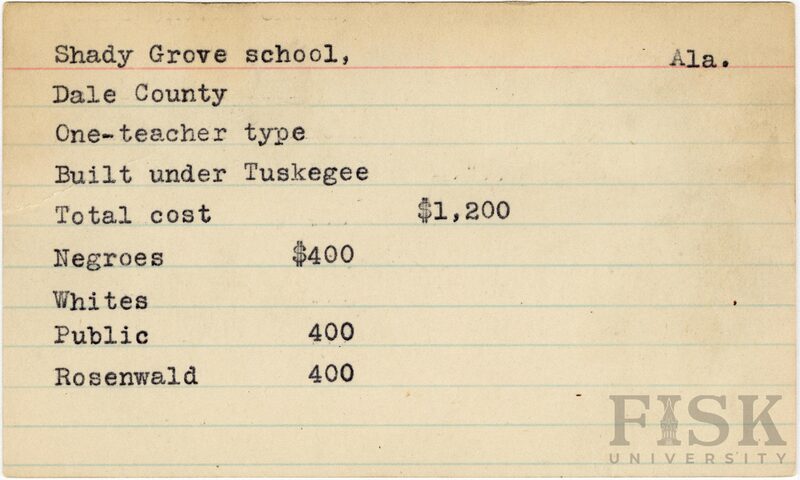 Shady Grove school, Ala.
Dale County
One-teacher type
Built under Tuskegee
Total cost $1,200
Negroes $400
Whites
Public 400
Rosenwald 400
FISK
UNIVERSITY